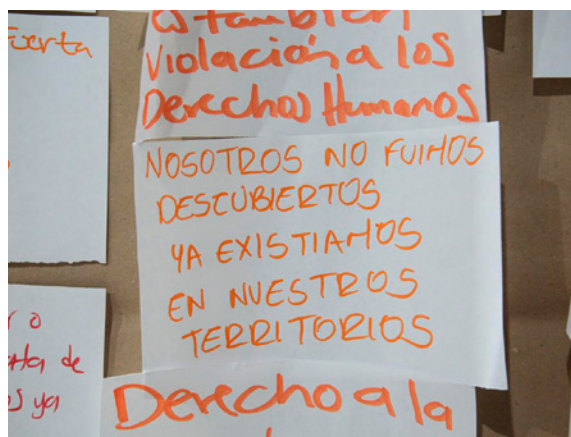 es también
Violación a los
Derechos Humanos
NOSOTROS NO FUIMOS
DESCUBIERTOS
YA EXISTIAMOS
EN NUESTROS
TERRITORIOS
Derecho a la
o
de
ya